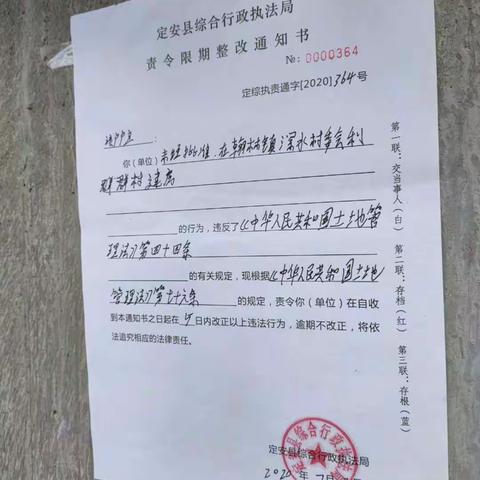 定安县综合行政执法局
责令限期整改通知书
№:0000364
定综执责通字[2020]364号
你(单位)未经批准,在翰林镇深水村委会
村建房
的行为,违反了《中华人民共和国土地管
理法》第四十四条
的有关规定,现根据《中华人民共和国土地
管理法》第七十六条的规定,责令你(单位)在自收
到本通知书之日起在 日内改正以上违法行为,逾期不改正,将依
法追究相应的法律责任。
定安县综合行政执法局
2020年7月
定安县综合行政执法局
第一联:交当事人(白) 第二联:存档(红) 第三联:存根(蓝)